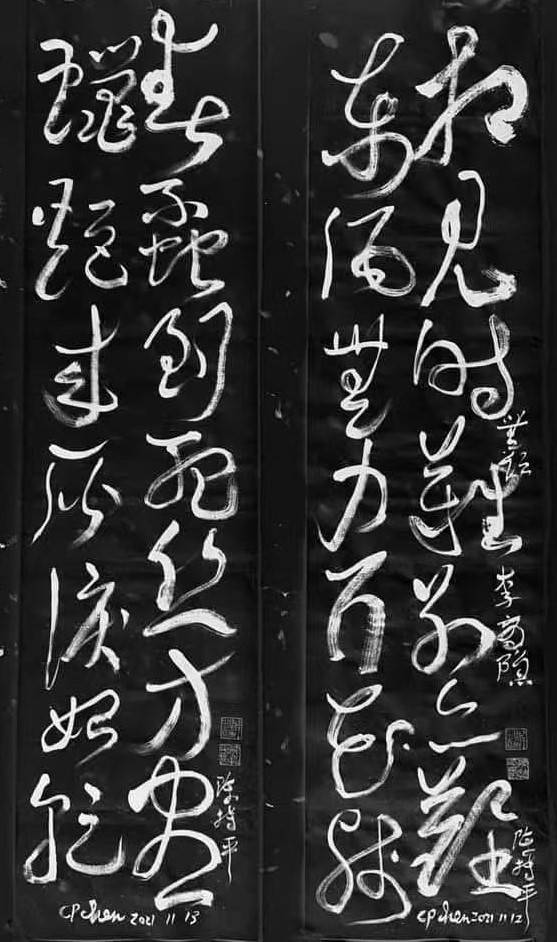 相見時難別亦難
東風無力百花殘
無題 李商隱
陳持平
CP chen 2021 11 12
春蠶到死絲方盡
蠟炬成灰淚始乾
陳持平
CP chen 2021 11 13